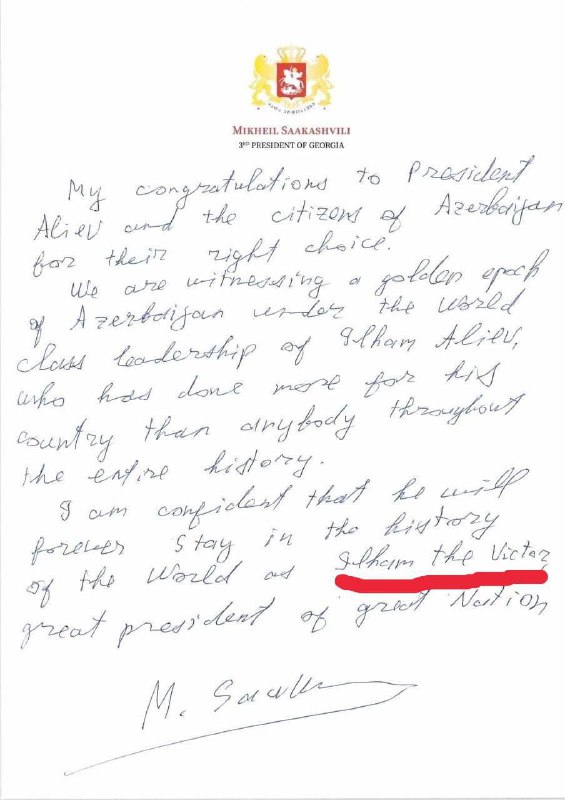 MIKHEIL SAAKASHVILI
3RD PRESIDENT OF GEORGIA
My congratulations to President
Aliev and the citizens of Azerbaijan
for their right choice.
We are witnessing a golden epoch
of Azerbaijan under the world
class leadership of Ilham Aliev,
who has done more for his
country than anybody throughout
the entire history.
I am confident that he will
forever stay in the history
of the World as Ilham the Victor,
great president of great Nation
M. Saak